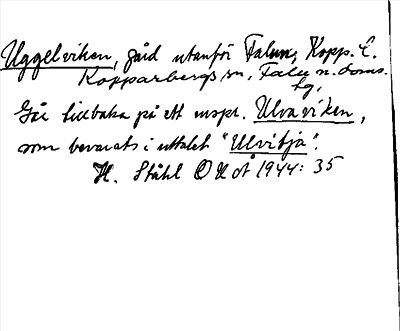 Uggelviken, gård utanför Falun, Kopp. l.
Kopparbergs sn, Falu n. doms.
tg,
Går tillbaka på ett urspr. Ulvaviken,
som bevarats i uttalet "Ulvitja".
H. Ståhl OUoÅ 1944: 35